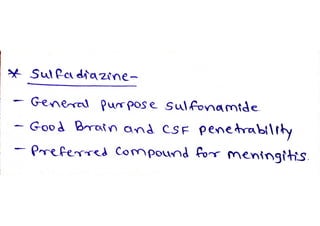 * Sulfadiazine-
- General purpose sulfonamide
- Good Brain and CSF penetrability
- Preferred compound for meningitis.